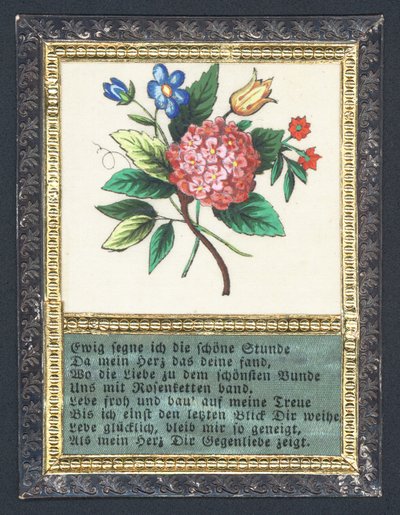 Ewig segne ich die schöne Stunde
Da mein Herz das deine fand,
Wo die Liebe zu dem schönsten Bunde
Uns mit Rosenketten band.
Lebe froh und bau' auf meine Treue
Bis ich einst den letzten Blick Dir weihe,
Lebe glücklich, bleib mir so geneigt,
Als mein Herz Dir Gegenliebe zeigt.